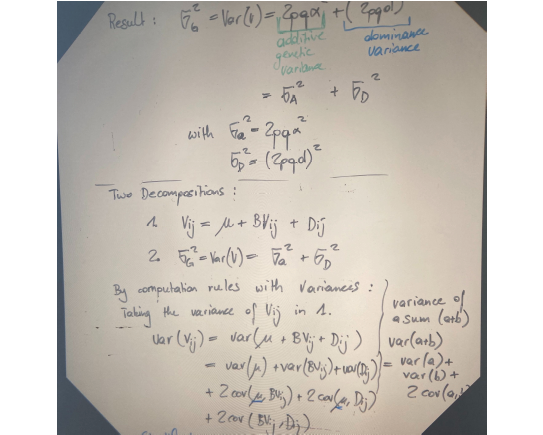 Result: σ_G² = Var(V) = 2pqα² + (2pqd)²
additive genetic variance
dominance variance
= σ_A² + σ_D²
with σ_a² = 2pqα²
σ_D² = (2pqd)²
Two Decompositions:
1. Vij = μ + BVij + Dij
2. σ_G² = Var(V) = σ_a² + σ_D²
By computation rules with Variances:
Taking the variance of Vij in 1.
var(Vij) = var(μ + BVij + Dij)
= var(μ) + var(BVij) + var(Dij)
+ 2cov(μ, BVij) + 2cov(μ, Dij)
+ 2cov(BVij, Dij)
variance of
a sum (a+b)
var(a+b)
= var(a) +
var(b) +
2 cov(a,